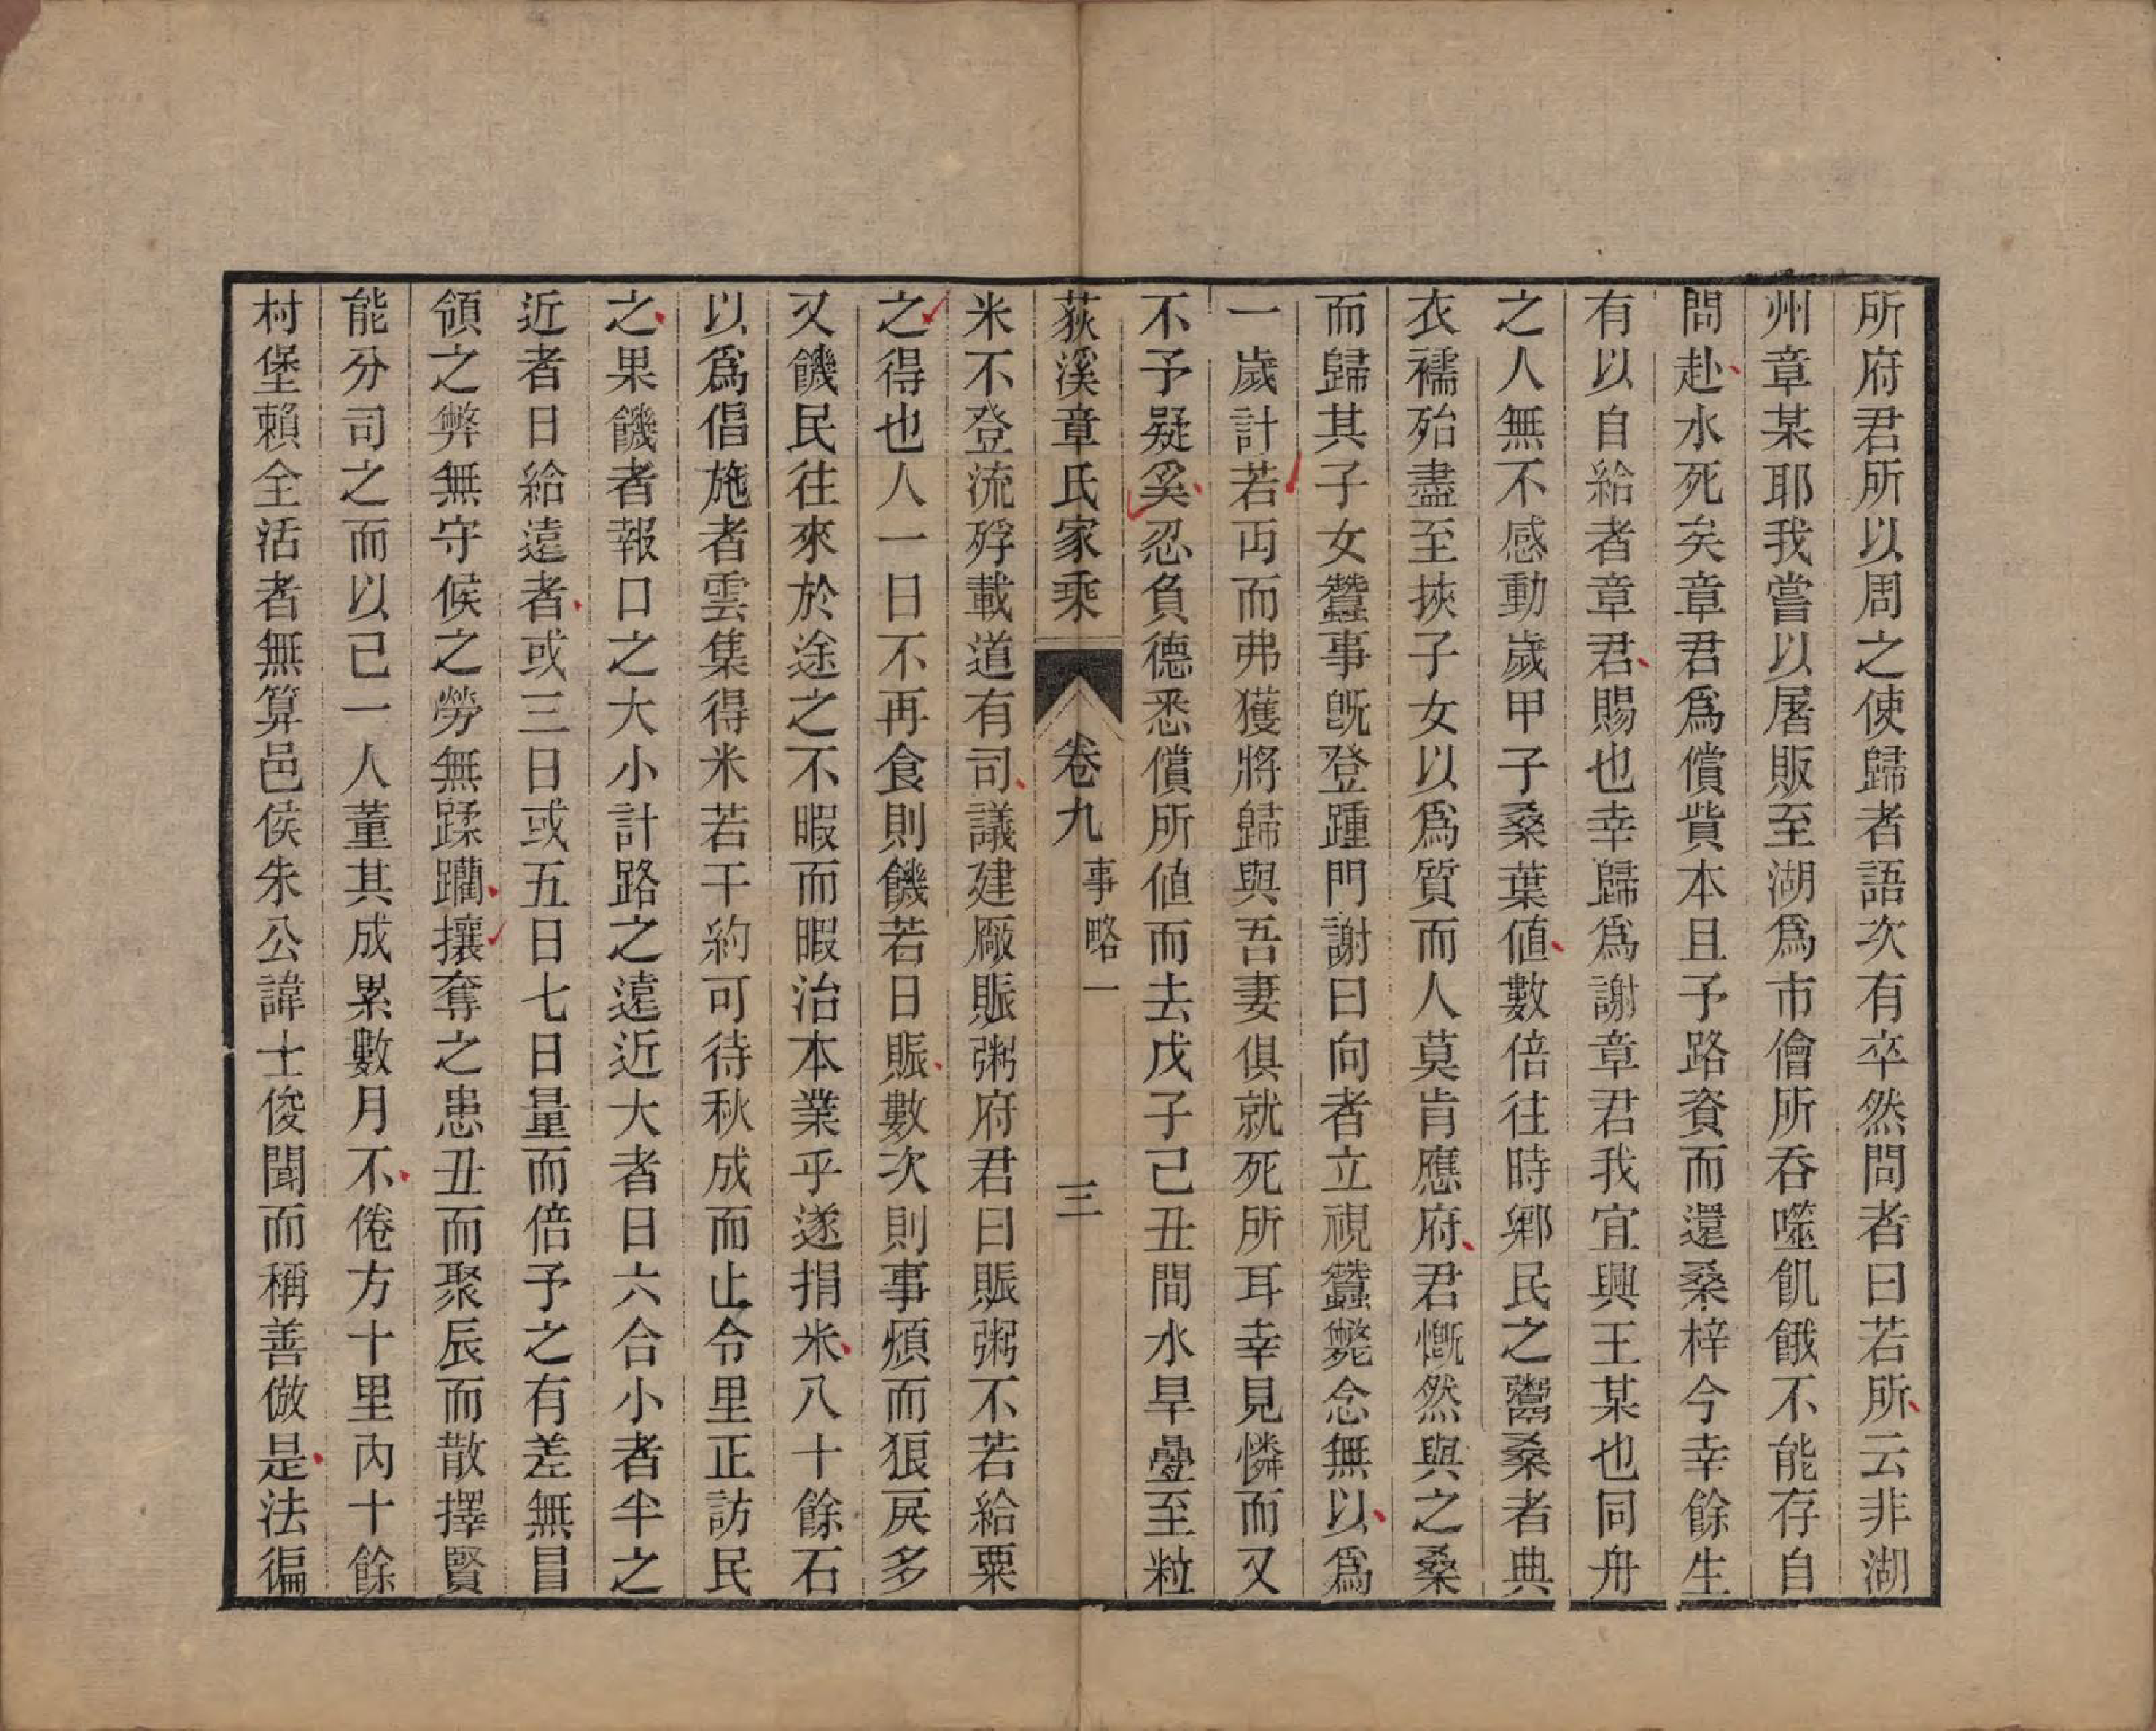 所府君所以周之使歸者語次有卒然問者曰若所云非湖
州章某耶我嘗以屠販至湖爲市儈所吞噬飢餓不能存自
問赴水死矣章君爲償貲本且予路資而還桑梓今幸餘生
有以自給者章君賜也幸歸爲謝章君我宜興王某也同舟
之人無不感動歲甲子桑葉値數倍往時鄉民之鬻桑者典
衣襦殆盡至挾子女以爲質而人莫肯應府君慨然與之桑
而歸其子女蠶事旣登踵門謝曰向者立視蠶斃念無以爲
一歲計若丏而弗獲將歸與吾妻俱就死所耳幸見憐而又
不予疑奚忍負德悉償所値而去戊子己丑間水旱疊至粒
荻溪章氏家乘
卷九
事略一
三
米不登流殍載道有司議建廠賑粥府君曰賑粥不若給粟
之得也人一日不再食則饑若日賑數次則事煩而狼戾多
又饑民往來於途之不暇而暇治本業乎遂捐米八十餘石
以爲倡施者雲集得米若干約可待秋成而止令里正訪民
之果饑者報口之大小計路之遠近大者日六合小者半之
近者日給遠者或三日或五日七日量而倍予之有差無冒
領之弊無守候之勞無蹂躪攘奪之患丑而聚辰而散擇賢
能分司之而以己一人董其成累數月不倦方十里內十餘
村堡賴全活者無算邑侯朱公諱士俊聞而稱善倣是法徧